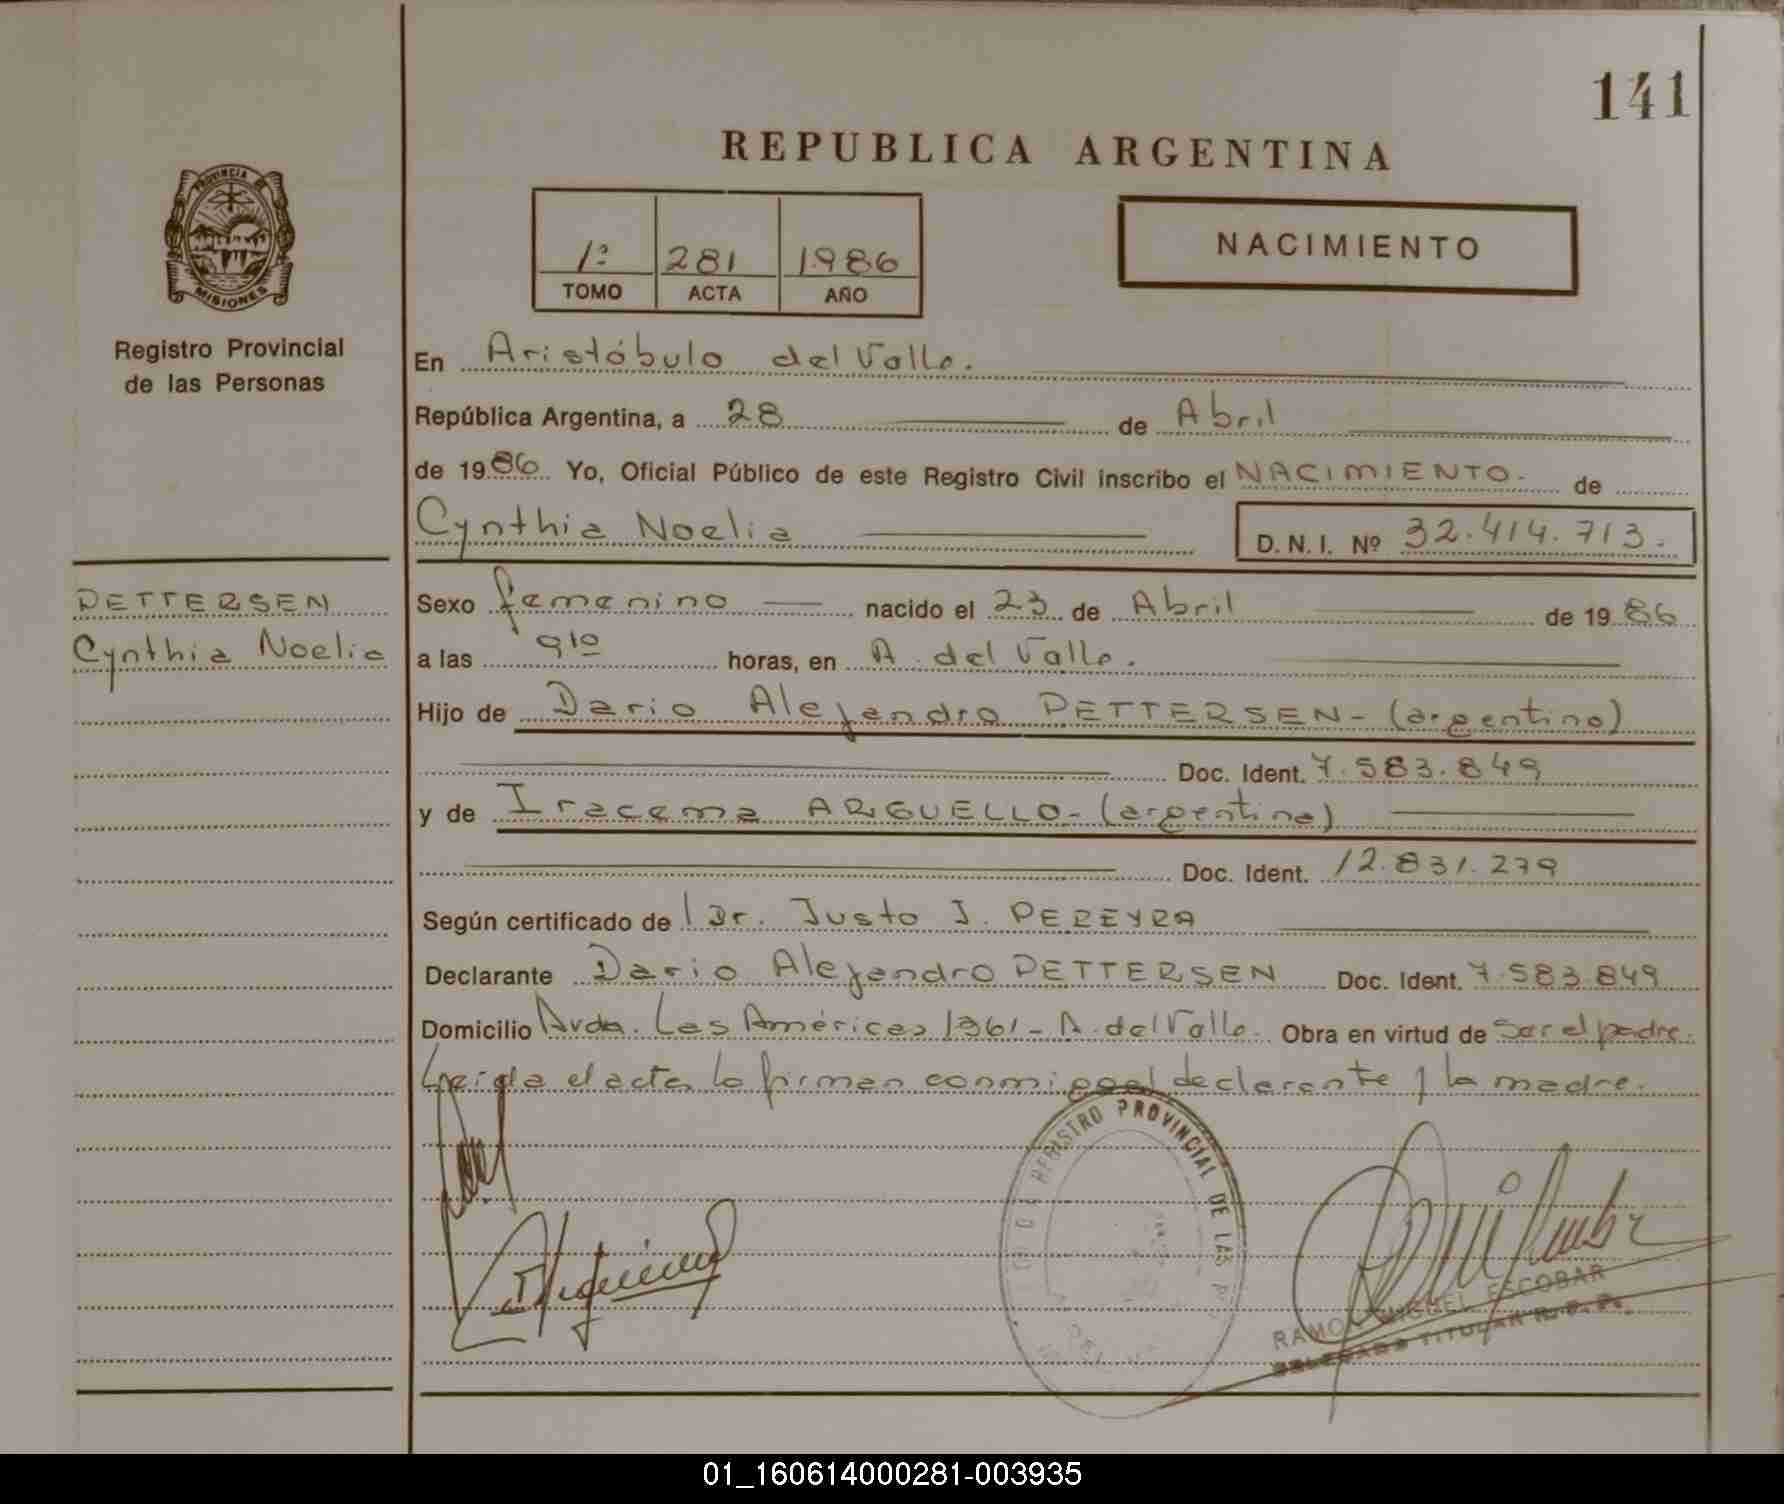 141
REPUBLICA ARGENTINA
PROVINCIA DE
MISIONES
Registro Provincial
de las Personas
1º 281 1986
TOMO ACTA AÑO
NACIMIENTO
En Aristóbulo del Valle.
República Argentina, a 28 de Abril
de 1986 Yo, Oficial Público de este Registro Civil inscribo el NACIMIENTO. de
Cynthia Noelia D. N. I. Nº 32.414.713.
PETTERSEN
Cynthia Noelia
Sexo femenino nacido el 23 de Abril de 1986
a las 9¹⁰ horas, en A. del Valle.
Hijo de Dario Alejandro PETTERSEN - (argentino)
Doc. Ident. 7.583.849
y de Iracema ARGUELLO - (argentina)
Doc. Ident. 12.831.279
Según certificado de l Dr. Justo J. PEREYRA
Declarante Dario Alejandro PETTERSEN Doc. Ident. 7.583.849
Domicilio Avda. Las Américas 1961 - A. del Valle. Obra en virtud de ser el padre.
Leída el acta lo firman conmigo el declarante y la madre.
REGISTRO PROVINCIAL DE LAS
RAMON MIGUEL ESCOBAR
DELEGADO TITULAR R. P. P.
01_160614000281-003935